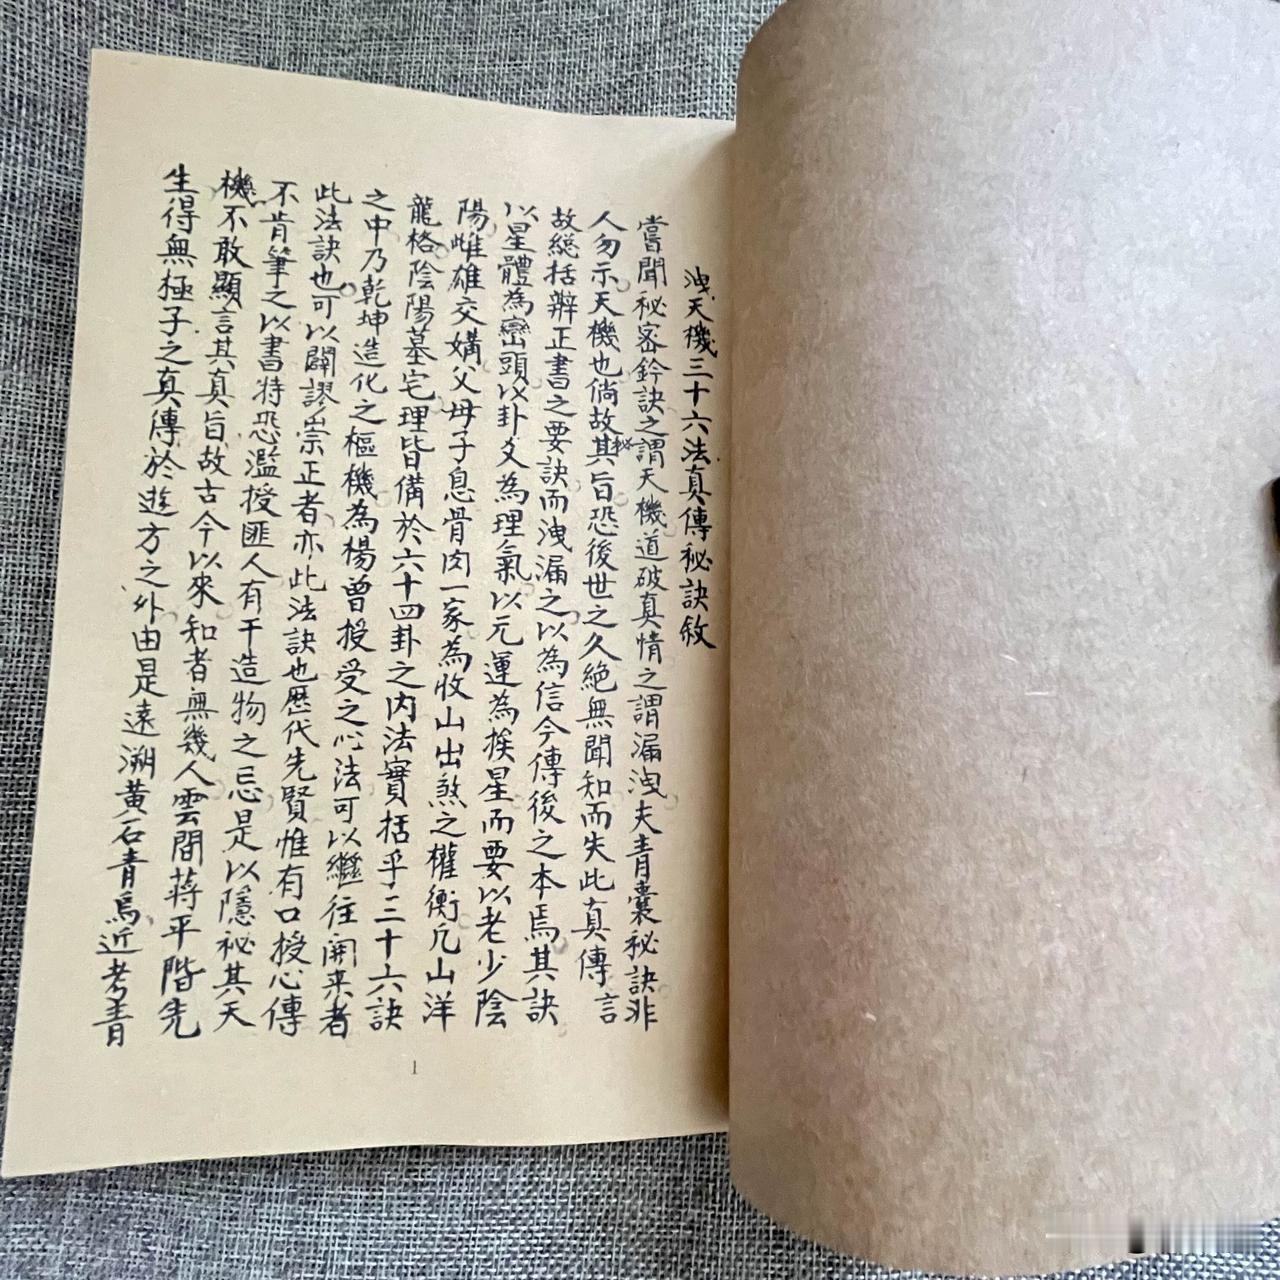 洩天機三十六法真傳秘訣敘
嘗聞秘密鈐訣之謂天機道破真情之謂漏洩夫青囊秘訣非
人勿示天機也倘故其秘旨恐後世之久絕無聞知而失此真傳言
故総括辨正書之要訣而洩漏之以為信今傳後之本焉其訣
以星體為巒頭以卦爻為理氣以元運為挨星而要以老少陰
陽雌雄交媾父母子息骨肉一家為收山出煞之權衡凡山洋
龍格陰陽墓宅理皆備於六十四卦之內法實括乎三十六訣
之中乃乾坤造化之樞機為楊曾授受之心法可以繼往開來者
此法訣也可以闢謬崇正者亦此法訣也歷代先賢惟有口授心傳
不肯筆之以書特恐濫授匪人有干造物之忌是以隱祕其天
機不敢顯言其真旨故古今以來知者無幾人雲間蔣平階先
生得無極子之真傳於遊方之外由是遠溯黃石青烏近考青
1